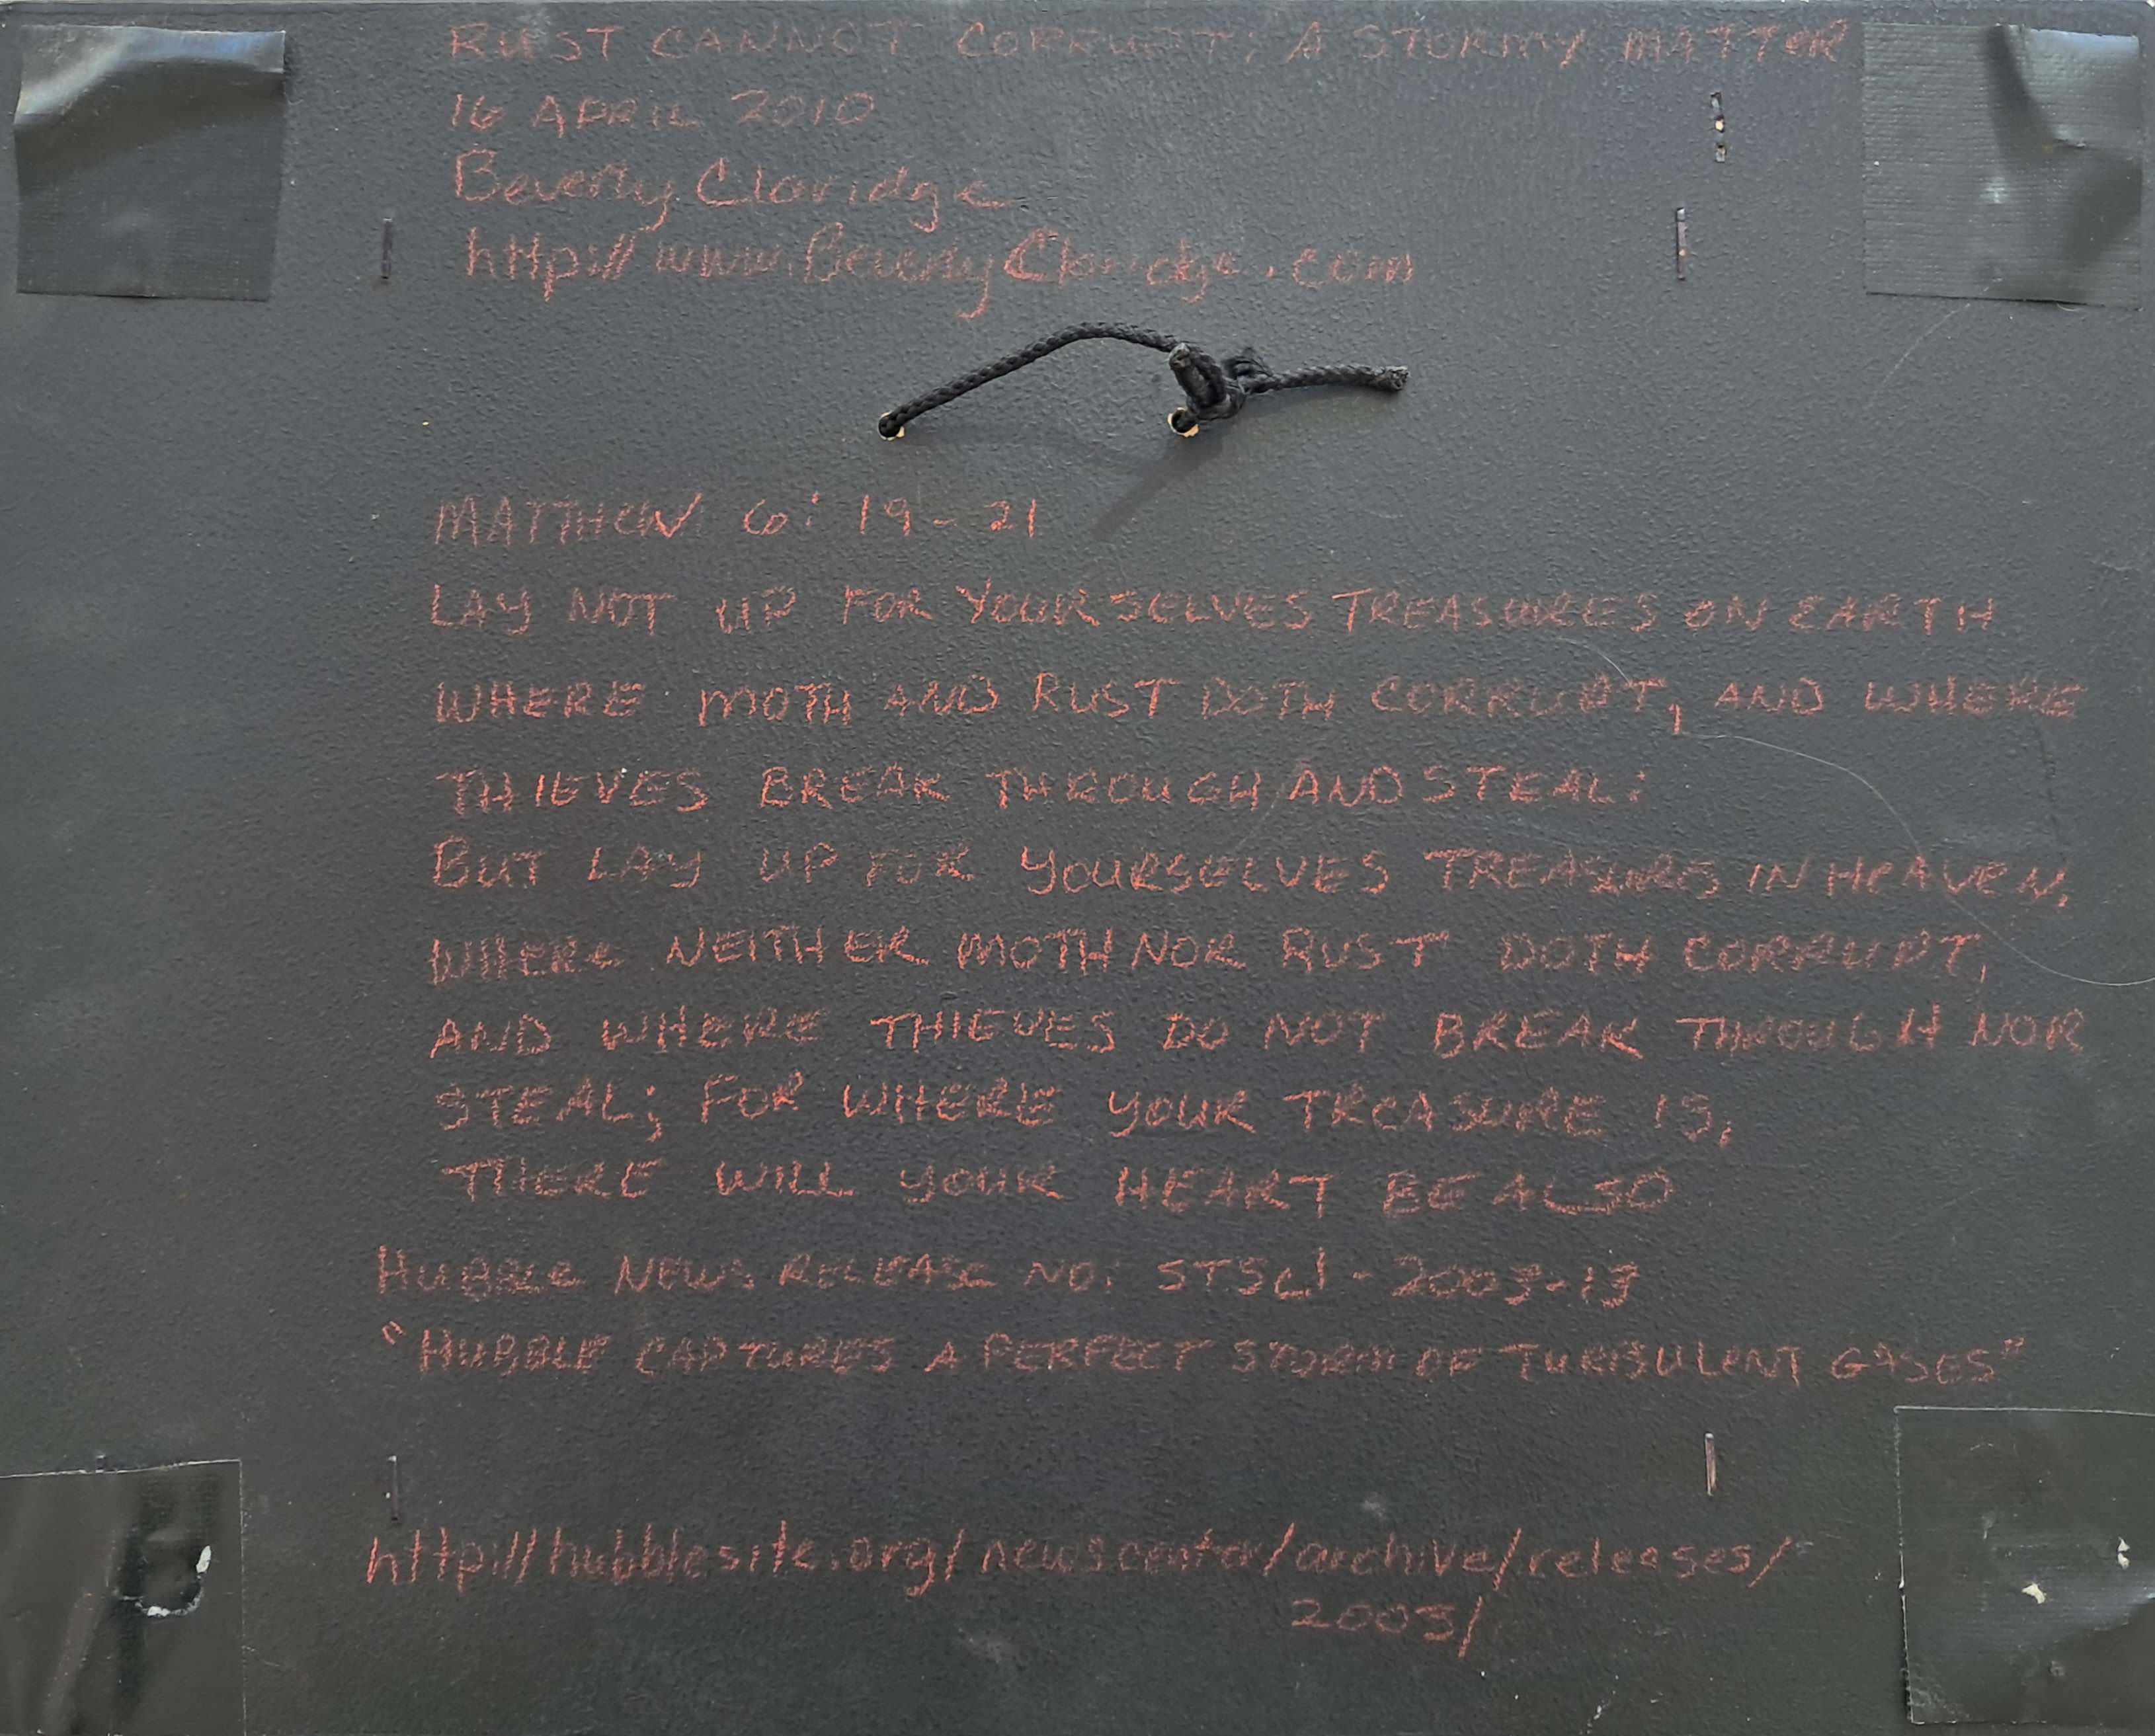 RUST CANNOT CORRUPT; A STORMY MATTER
16 APRIL 2010
Beverly Claridge
http://www.BeverlyClaridge.com
MATTHEW 6:19-21
LAY NOT UP FOR YOURSELVES TREASURES ON EARTH
WHERE MOTH AND RUST DOTH CORRUPT, AND WHERE
THIEVES BREAK THROUGH AND STEAL:
BUT LAY UP FOR YOURSELVES TREASURES IN HEAVEN,
WHERE NEITHER MOTH NOR RUST DOTH CORRUPT,
AND WHERE THIEVES DO NOT BREAK THROUGH NOR
STEAL; FOR WHERE YOUR TREASURE IS,
THERE WILL YOUR HEART BE ALSO
HUBBLE NEWS RELEASE NO: STScI-2003-13
"HUBBLE CAPTURES A PERFECT STORM OF TURBULENT GASES"
http://hubblesite.org/newscenter/archive/releases/
2003/